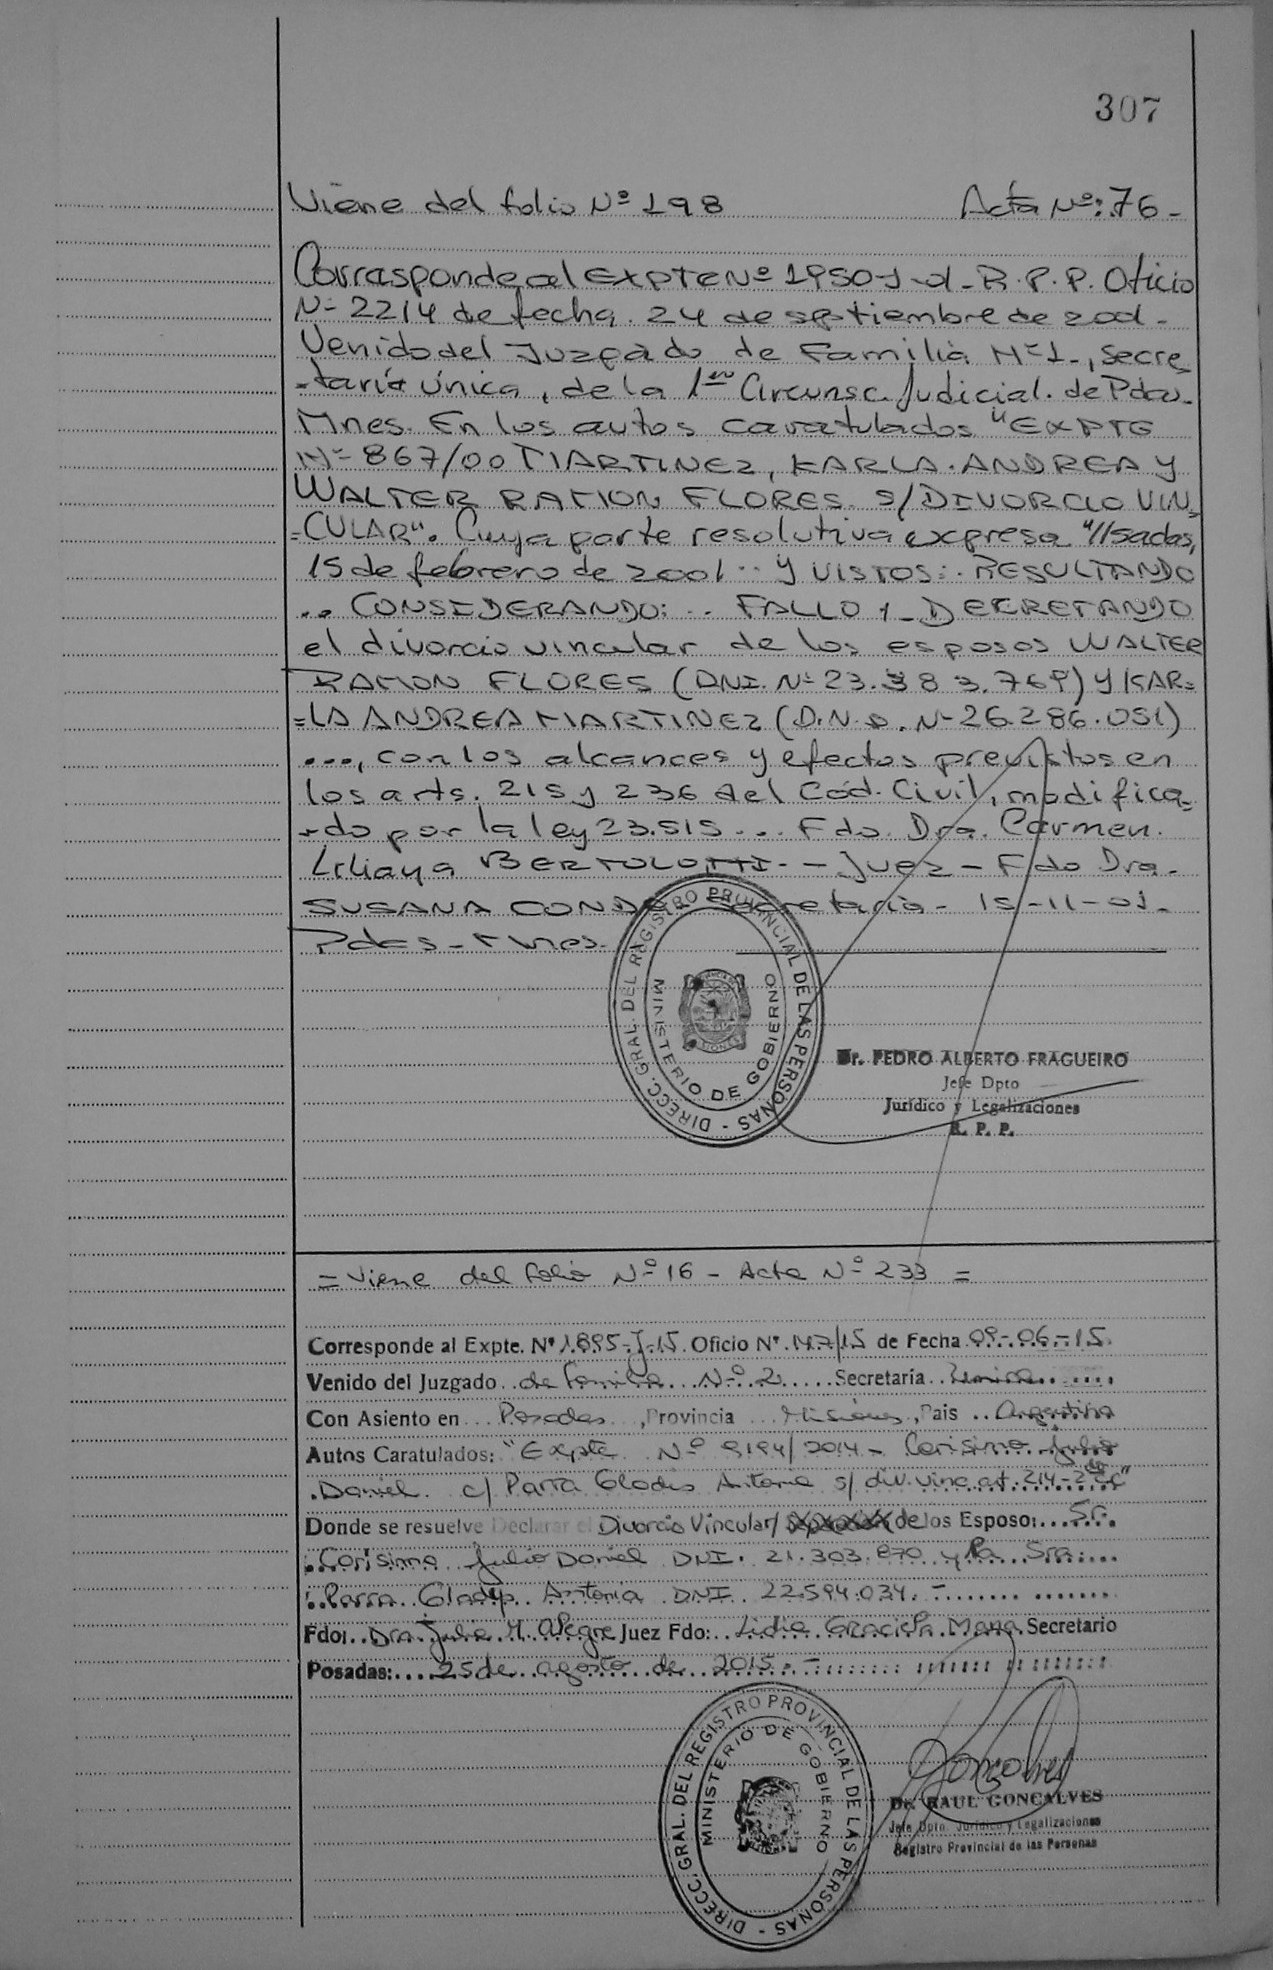 307
Viene del folio Nº 198 Acta Nº: 76-
Corresponde al EXPTE Nº 1950-J-01- R.P.P. Oficio
Nº 2214 de fecha 24 de septiembre de 2001-
Venido del Juzgado de Familia Nº 1-, Secre
-taría Única, de la 1ra Circunsc. Judicial. de Pdas-
Mnes. En los autos caratulados "EXPTE
Nº 867/00 MARTINEZ, KARLA ANDREA y
WALTER RAMON FLORES S/DIVORCIO VIN=
=CULAR". Cuya parte resolutiva expresa "//sadas,
15 de febrero de 2001.. Y VISTOS:. RESULTANDO
... CONSIDERANDO: .. FALLO 1- DECRETANDO
el divorcio vincular de los esposos WALTER
RAMON FLORES (DNI. Nº 23.383.769) y KAR=
=LA ANDREA MARTINEZ (D.N.I. Nº 26.286.051)
..., con los alcances y efectos previstos en
los arts. 215 y 236 del Cód. Civil, modifica=
-do por la ley 23.515 ... Fdo. Dra. Carmen
Liliana BERTOLOTTI - - Juez - Fdo Dra.
SUSANA CONDE Secretaria - 15-11-01-
Pdas - Mnes.
DIRECC. GRAL. DEL REGISTRO PROVINCIAL DE LAS PERSONAS -
MINISTERIO DE GOBIERNO
Dr. PEDRO ALBERTO FRAGUEIRO
Jefe Dpto
Jurídico y Legalizaciones
R. P. P.
= Viene del folio Nº 16 - Acta Nº 233 =
Corresponde al Expte. Nº 1895-J-15 Oficio Nº 147/15 de Fecha 09-06-15.
Venido del Juzgado de Familia Nº 2 Secretaría Única
Con Asiento en Posadas, Provincia Misiones, Pais Argentina
Autos Caratulados: "Expte Nº 9194/2014- Corisimo Julio
Daniel c/ Parra Gladis Antonia s/ div. vinc art. 214-
Donde se resuelve Declarar el Divorcio Vincular/ de los Esposo: Sr.
Corisimo Julio Daniel DNI. 21.303.870 y la Sra:
Parra Gladys Antonia DNI 22.594.034.-
Fdo: Dra. Julia M. Alegre Juez Fdo: Lidia Graciela Secretario
Posadas: 25 de agosto de 2015.-
DIRECC. GRAL. DEL REGISTRO PROVINCIAL DE LAS PERSONAS -
MINISTERIO DE GOBIERNO
Goncalves
Dr. RAUL GONCALVES
Jefe Dpto. Jurídico y Legalizaciones
Registro Provincial de las Personas